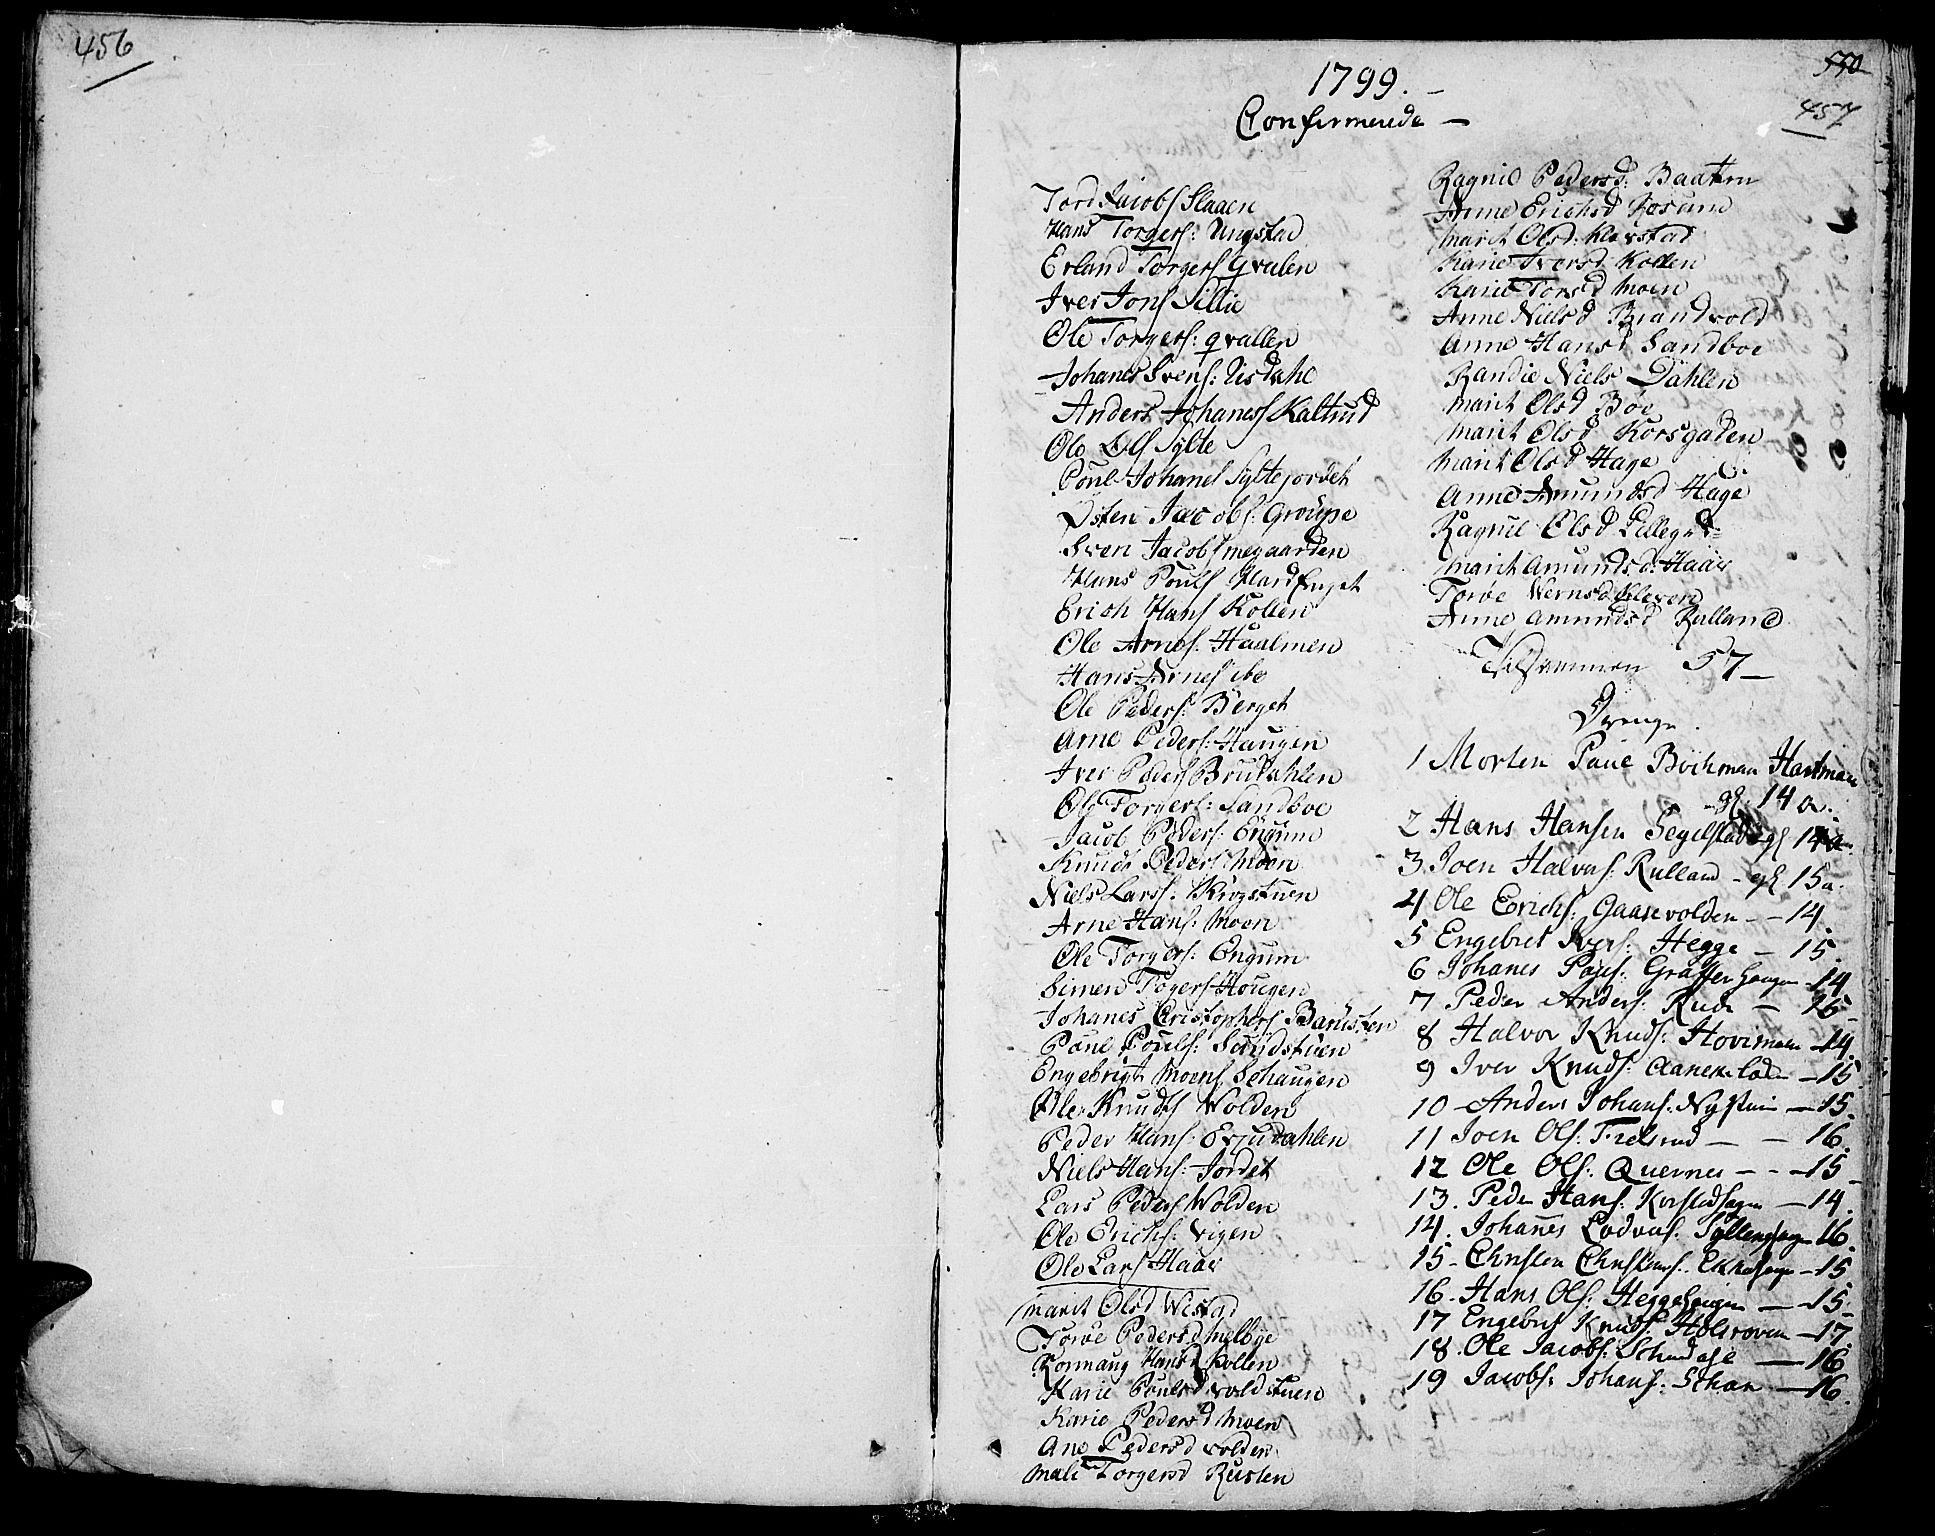 456
550
457
1799.
Confirmerede
Tord Jacobs Slaaen
Hans Torgers: Ungstad
Erland Torgers Qvalen
Iver Jons Sillie
Ole Torgers: qvallen
Johanes Svens: Usdahl
Anders Johanes Kaltrud
Ole Ols Sylte
Poul Johanes Syltejordet
Østen Jacobs: Groupe
Sven Jacobs megaarden
Hans Pouls Hard Enget
Erich Hans Kollen
Ole Arnes: Haalmen
Hans Arnes ibo
Ole Peders: Berget
Arne Peders: Haugen
Iver Peders Brudahlen
Ole Torgers: Sandboe
Jacob Peders: Engum
Knuds Peders Moen
Niels Lars: Krogstuen
Arne Hans: Moen
Ole Torgers: Engum
Simen Togers Hougen
Johanes Cristophers Banusten
Poul Pouls: Suydstuen
Engebrigt Moens Behaugen
Ole Knuds Wolden
Peder Hans: Evjudahlen
Niels Hans: Jordet
Lars Peders Wolden
Ole Erichs: Vigen
Ole Lars Haar
marit Olsd Westad
Toroe Pedersd melbye
Ronnaug Hansd Kollen
Karie Poulsd voldstuen
Karie Pedersd Moen
Ane Pedersd volden
mali Torgersd Rusten
Ragnil Pedersd: Baatten
Anne Erichsd Rosum
marit Olsd: Klevstad
Karie Iversd Kollen
Karie Torsd moen
Anne Nielsd Brandvold
Anne Hansd Sandboe
Randie Niels Dahlen
marit Olsd Böe
marit Olsd Korsgaden
marit Olsd Hage
Anne Amundsd Hage
Ragnil Olsd Lillegrd=
marit Amundsd: Haar
Toroe Wernsd Kleven
Anne amundsd Rulland
Tilsammen 57
Drenge
1 Morten Paul Böchman Hartman
gl. 14 a.
2 Hans Hansen Segelstad gl 14 a
3 Joen Halvors: Rulland - gl 15 a.
4 Ole Erichs: Gaasevolden - - 14
5 Engebret Ivers: Hegge - 15.
6 Johanes Pouls: Graffer haugen 14
7 Peder Anders: Rude - 15
8 Halvor Knuds: Hovimoen - 14
9 Iver Knuds: Aanekeladen - 15
10 Anders Johans: Nystuen - 15.
11 Joen Ols: Fielstad - - 16.
12 Ole Ols: Quernes - - - 15
13. Peder Hans: Korstadhagen - 14.
14. Johannes Lodvas: Syltenghagen 16.
15 - Christen Christens: Ekrehagen - 15
16. Hans Ols: Heggehaugen - 15.
17 Engebret Knuds: Holsroven - 17
18. Ole Jacobs: Schudahl - 16
19 Jacobs: Johans: Schar - 16.